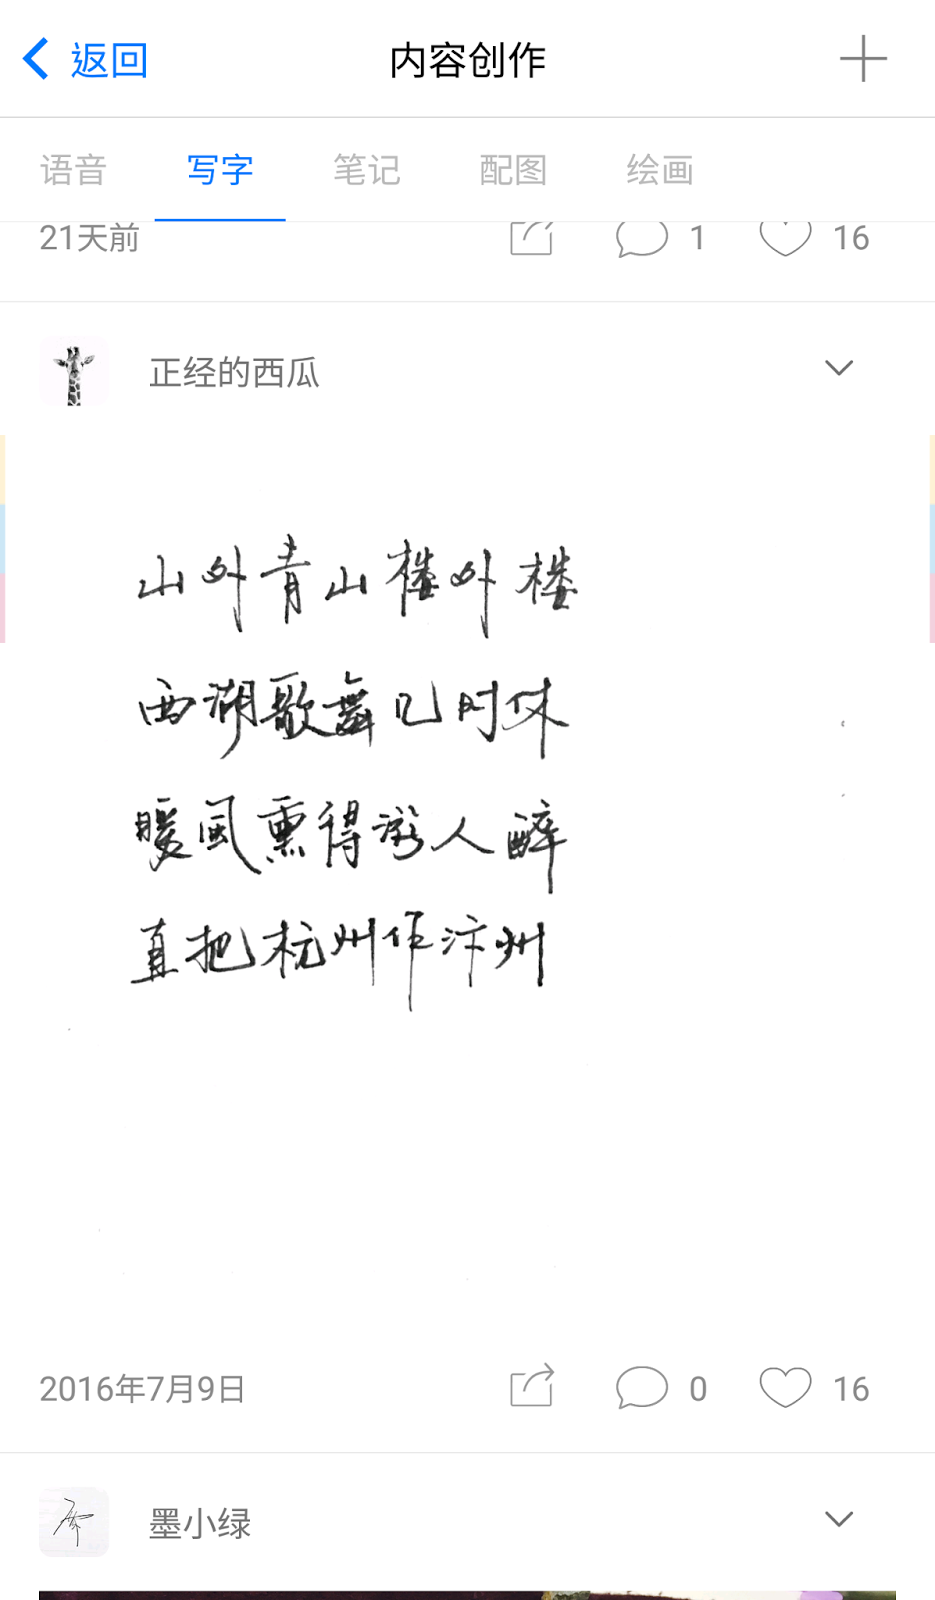 返回 内容创作
语音 写字 笔记 配图 绘画
21天前 1 16
正经的西瓜
山外青山楼外楼
西湖歌舞几时休
暖风熏得游人醉
直把杭州作汴州
2016年7月9日 0 16
墨小绿